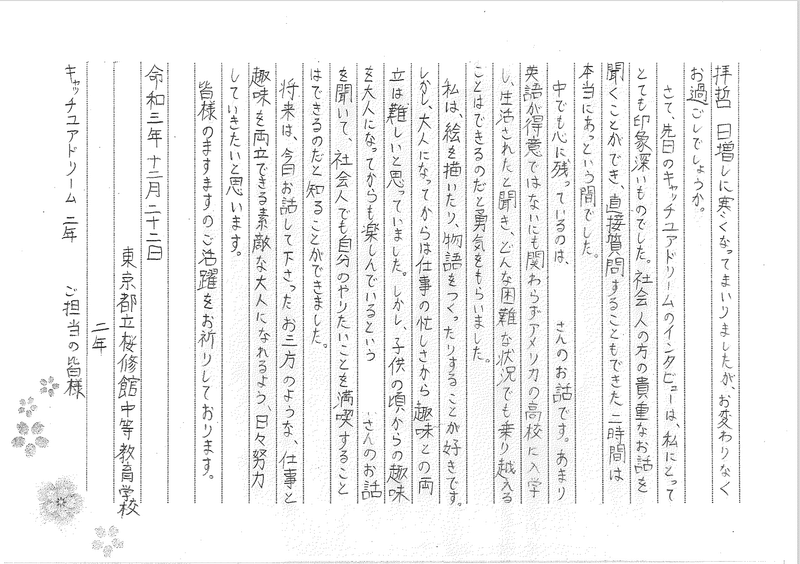 拝啓　日増しに寒くなってまいりましたが、お変わりなく
お過ごしでしょうか。
さて、先日のキャッチユアドリームのインタビューは、私にとって
とても印象深いものでした。社会人の方の貴重なお話を
聞くことができ、直接質問することもできた二時間は
本当にあっという間でした。
中でも心に残っているのは、　　　さんのお話です。あまり
英語が得意ではないにも関わらずアメリカの高校に入学
し、生活されたと聞き、どんな困難な状況でも乗り越える
ことはできるのだと勇気をもらいました。
私は、絵を描いたり、物語をつくったりすることが好きです。
しかし、大人になってからは仕事の忙しさから趣味との両
立は難しいと思っていました。しかし、子供の頃からの趣味
を大人になってからも楽しんでいるという　　　さんのお話
を聞いて、社会人でも自分のやりたいことを満喫すること
はできるのだと知ることができました。
将来は、今回お話して下さったお三方のような、仕事と
趣味を両立できる素敵な大人になれるよう、日々努力
していきたいと思います。
皆様のますますのご活躍をお祈りしております。
命和三年十二月二十二日
東京都立桜修館中等教育学校
二年
キャッチユアドリーム　二年　　ご担当の皆様